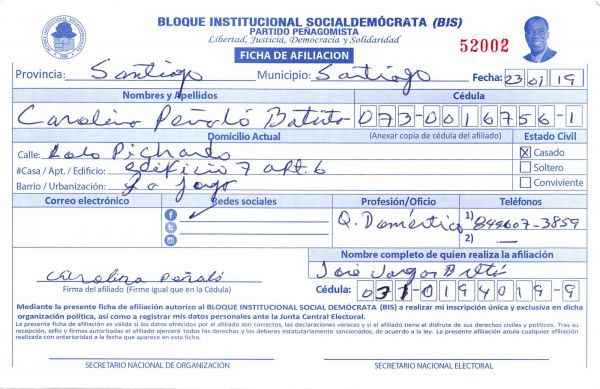 BLOQUE INSTITUCIONAL SOCIALDEMÓCRATA (BIS)
PARTIDO PEÑAGOMISTA
Libertad, Justicia, Democracia y Solidaridad
FICHA DE AFILIACION
52002
Provincia: Santiago Municipio: Santiago Fecha: 23 01 19
Nombres y Apellidos Cédula
Carolina Peñaló 073-0016756-1
Domicilio Actual (Anexar copia de cédula del afiliado) Estado Civil
Calle: Lolo Pichardo X Casado
#Casa / Apt. / Edificio: edificio 7 apt. 6 Soltero
Barrio / Urbanización: Conviviente
Correo electrónico Redes sociales Profesión/Oficio Teléfonos
Q. Doméstico 1) 849 607-3859
2) —
Nombre completo de quien realiza la afiliación
Carolina Peñaló José
Firma del afiliado (Firme igual que en la Cédula) Cédula: 031-0194019-9
Mediante la presente ficha de afiliación autorizo al BLOQUE INSTITUCIONAL SOCIAL DEMÓCRATA (BIS) a realizar mi inscripción única y exclusiva en dicha
organización política, así como a registrar mis datos personales ante la Junta Central Electoral.
La presente ficha de afiliación es válida si los datos ofrecidos por el afiliado son correctos, las declaraciones veraces y si el afiliado tiene el disfrute de sus derechos civiles y políticos. Tras su
recepción, sello y firmas autorizadas el afiliado ejercerá todos los derechos y los deberes estatutariamente sancionados, de acuerdo a la ley. La presente afiliación anula cualquier afiliación
realizada con anterioridad a la fecha que aparece en esta ficha.
SECRETARIO NACIONAL DE ORGANIZACIÓN SECRETARIO NACIONAL ELECTORAL